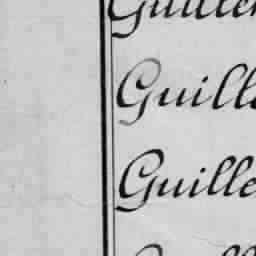 Guiller
Guill
Guille